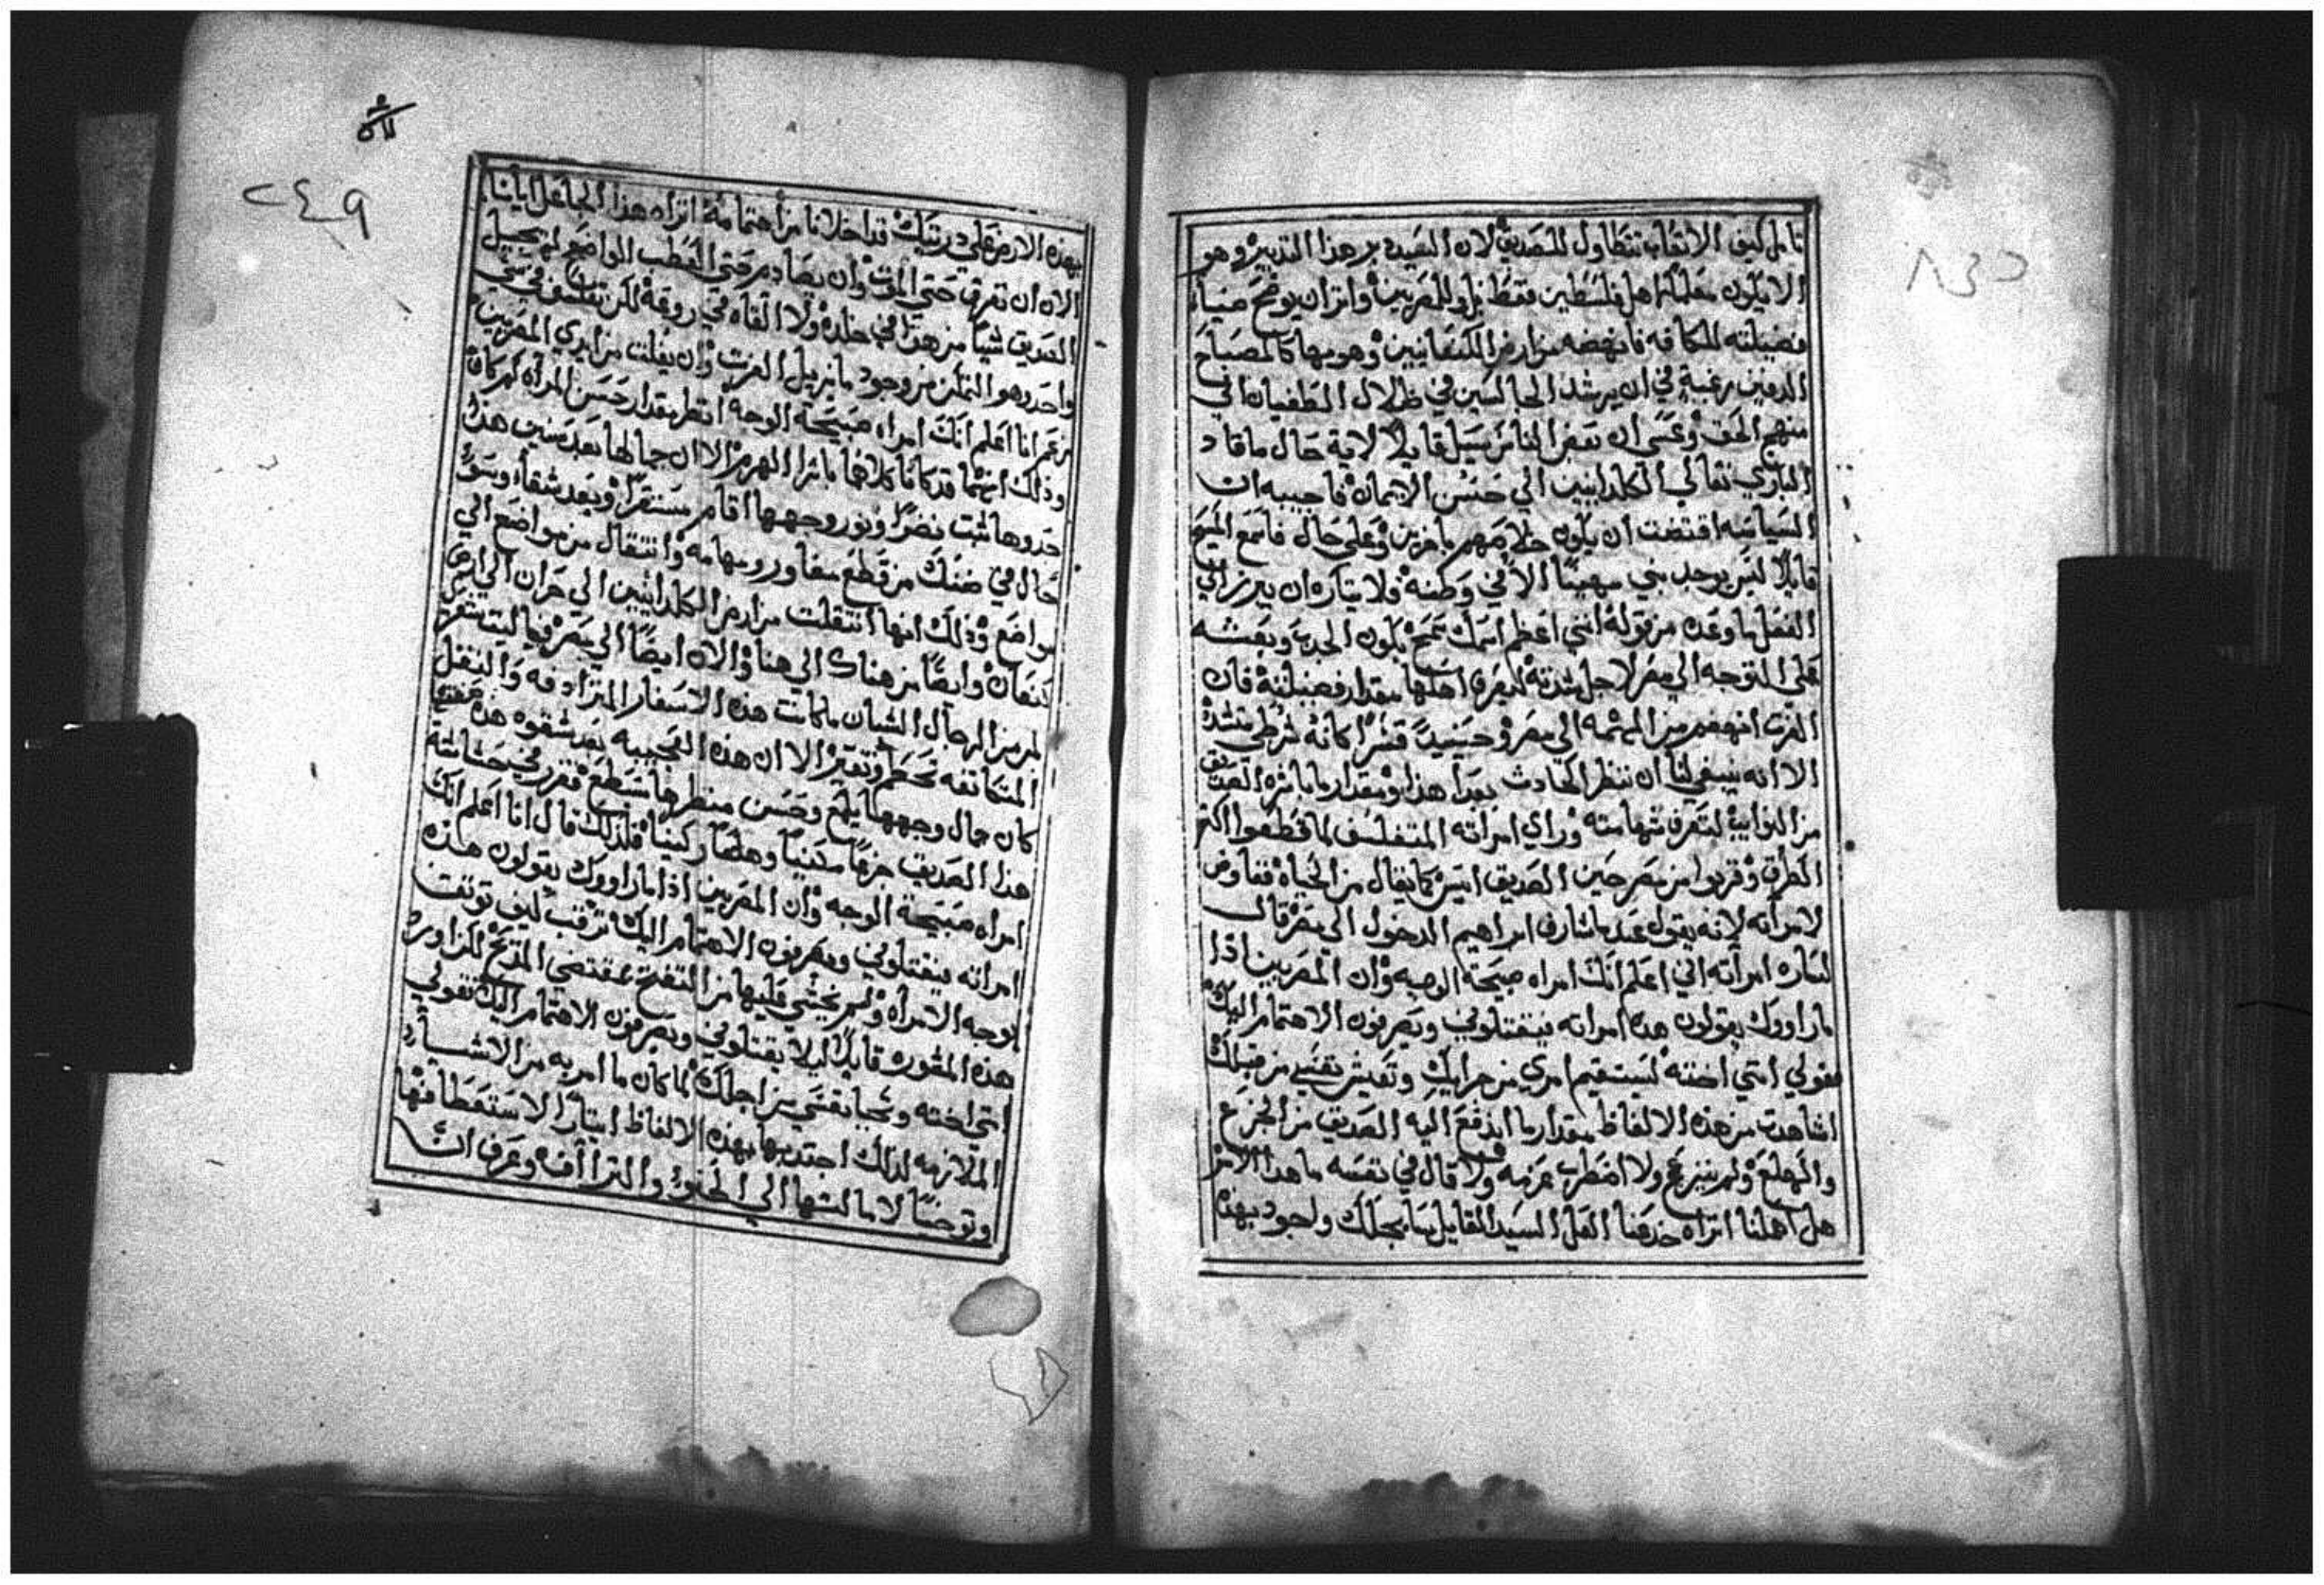 تامل كيف الاتعاب تتطاول للصديق لان السيد دبر هذا التدبير وهو
الا يكون معلماً لاهل فلسطين فقط بل وللمصريين واثر ان يوضح ضياء
فضيلته للكافه فانهضه من ارض الكنعانيين وهو بها كالمصباح
الدفين رغبة في ان يرشد الجالسين في ظلال الطغيان الي
منهج الحق وعسي ان بعض الناس يسيل قايلاً لاية حال ما قاد
الباري تعالي الكلدانيين الي حسن الايمان فاجيبه ان
السياسه اقتضت ان يكون خلاصهم باخرين وعلي حال فاسمع المسيح
قايلاً ليس يوجد نبي مهيناً الا في وطنه فلا يتاره ان يبرز الي
الفعل ما وعده من قوله انني اعظم اسمك سمح بكون الجدب وبعثه
علي التوجه الي مصر لاجل شدته ليعرف اهلها مقدار فضيلته فان
الغرث انهضهم من المهمه الي مصر وحينيذ قسراً كانه شرطي بشدة
الا انه ينبغي لنا ان ننظر الحادث بعد هذا ومقدار ما باشره الصديق
من النوايب لتعرف شهامته وراي امراته المتفلسف لما قطعوا اكثر
الطرق وقربوا من مصر حين الصديق ايس كما يقال من الحياة فتفاوض
لامراته لانه يقول عند ما شارف ابراهيم الدخول الي مصر قال
لساره امراته اني اعلم انك امراه صبيحة الوجه وان المصريين اذا
ما راووك يقولون هذه امراته فيقتلوني ويصرفون الاهتمام اليك
فقولي انني اخته ليستقيم امري من جرايك وتعيش نفسي من قبلك
اشاهدت من هذه الالفاظ مقدار ما اندفع اليه الصديق من الجزع
والهلع ولم ينزعج ولا اضطرب عزمه ولا قال في نفسه ما هذا الامر
هل اهملنا اتراه خدعنا العل السيد القايل سابجلك ولجود بهذه
٢٤٩
بهذه الارض علي ذريتك قد اخلانا من اهتمامه اتراه هذا الجاعل ايانا
الان ان نفرق حتي الموت وان يصادمرحتي العطب المواضع لم يجيل
الصديق شياً من هذا في خلده ولا القاه في روعه لكن تفلسف في شي
واحد وهو التمكن من وجود ما يزيل الغرث وان يفلت من ايدي المصريين
زعم انا اعلم انك امراه صبيحة الوجه انظر مقدار حسن المرأه كم كان
وذلك انهما قد كانا كلاهما باشرا الهرم الا ان جمالها بعد سنين هذا
حدوها ثبت نضراً ونور وجهها اقام مستقراً وبعد شقاء وسوء
حال في ضنك من قطع مغاور ومهامه وانتقال من مواضع الي
مواضع وذلك انها انتقلت من ارض الكلدانيين الي حران الي ارض
كنعان وايضاً من هناك الي هنا والان ايضاً الي مصر فيا ليت شعري
لمن من الرجال الشبان ما كانت هذه الاسفار المترادفه والتنقل
المتكاتفه تحطم وتفتر الا ان هذه العجيبه بعد شقوه هذه صفتها
كان جمال وجهها يلمع وحسن منظرها يسطع ففرز في حشاشة
هذا الصديق جزعاً متيناً وهلعاً ركيناً فلذلك قال انا اعلم انك
امراه صبيحة الوجه وان المصريين اذا ما راووك يقولون هذه
امراته فيقتلوني ويصرفون الاهتمام اليك ترقب كيف توثقت
بوجه الامرأه ولم يخشي عليها من التفتح بمقتضي المدح لكن اورد
هذه المشوره قايلاً ليلا يقتلوني ويصرفون الاهتمام اليك تقولي
انني اخته وتحيا نفسي من اجلك لما كان ما امر به من الاشياء
الملازمه لذلك اجتذبها بهذه الالفاظ ايثاراً لاستعطافها
وتوخياً لامالتها الي الحنو والتراأف وعرف ان